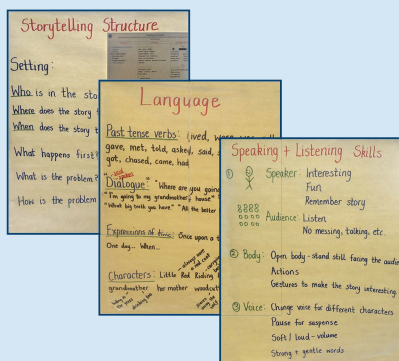 Storytelling Structure
Setting:
Who is in the sto
Where does the story t
When does the story t
What happens first?
What is the problem?
How is the problem
Language
Past tense verbs: lived,
gave, met, told, asked, said,
got, chased, came, had
Dialogue: "Where are you going
"I'm going to my grandmother's house"
"What big teeth you have" "All the better
Expressions of time: Once upon a t
One day... When...
always wore a red coat
Characters: Little Red Riding
grandmother her mother woodcutt
Speaking + Listening Skills
① Speaker: Interesting
Fun
Remember story
Audience: Listen
No messing, talking, etc.
② Body: Open body - stand still facing the audien
Actions
Gestures to make the story interesting
③ Voice: Change voice for different characters
Pause for suspense
Soft / loud - volume
Strong + gentle words